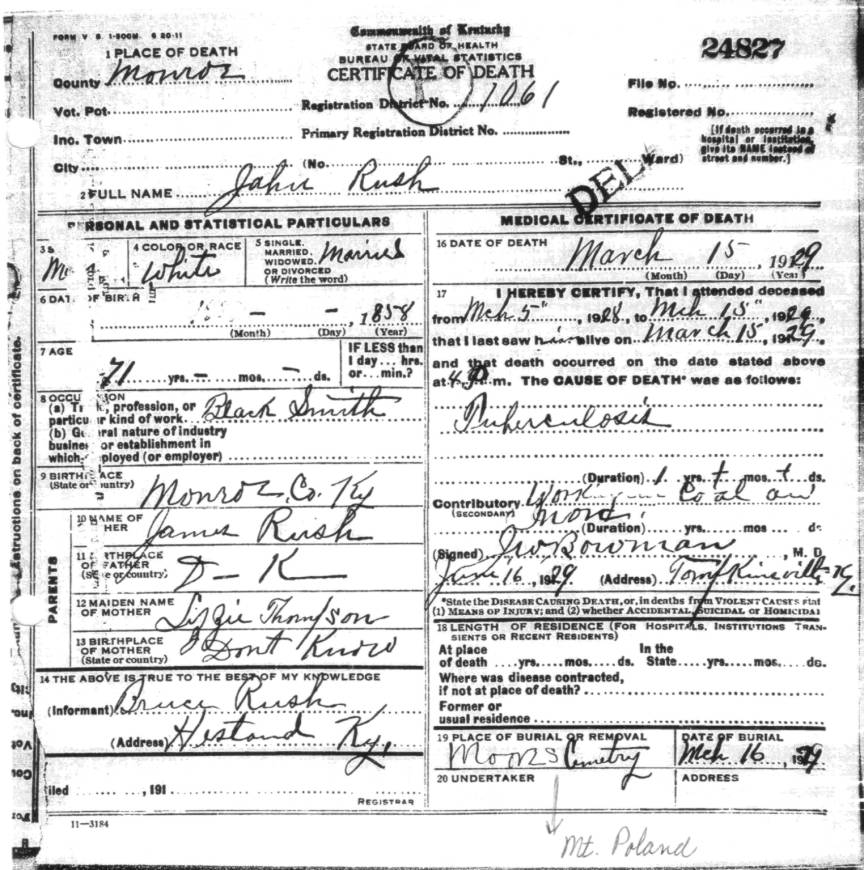 FORM V. S. 1-500M. 6 20-11
Commonwealth of Kentucky
STATE BOARD OF HEALTH
BUREAU OF VITAL STATISTICS
CERTIFICATE OF DEATH
24827
1 PLACE OF DEATH
County Monroe
Vot. Pct.
Inc. Town
City
Registration District No. 1061
Primary Registration District No.
(No. St., Ward)
File No.
Registered No.
[If death occurred in a hospital or institution, give its NAME instead of street and number.]
DEL
2 FULL NAME John Rush
PERSONAL AND STATISTICAL PARTICULARS
3 S
M
4 COLOR OR RACE
White
5 SINGLE, MARRIED, WIDOWED, OR DIVORCED (Write the word)
Married
6 DATE OF BIRTH
– – 1858
(Month) (Day) (Year)
7 AGE
71 yrs. – mos. – ds.
IF LESS than 1 day... hrs. or... min.?
8 OCCUPATION
(a) Trade, profession, or particular kind of work Black Smith
(b) General nature of industry business or establishment in which employed (or employer)
9 BIRTHPLACE (State or country)
Monroe Co. Ky
PARENTS
10 NAME OF FATHER
James Rush
11 BIRTHPLACE OF FATHER (State or country)
D – K
12 MAIDEN NAME OF MOTHER
Lizzie Thompson
13 BIRTHPLACE OF MOTHER (State or country)
Dont Know
14 THE ABOVE IS TRUE TO THE BEST OF MY KNOWLEDGE
(Informant) Bruce Rush
(Address) Hestand Ky,
iled , 191
REGISTRAR
11—3184
MEDICAL CERTIFICATE OF DEATH
16 DATE OF DEATH
March 15, 1929
(Month) (Day) (Year)
17 I HEREBY CERTIFY, That I attended deceased
from Mch 5", 1928, to Mch 15", 1929
that I last saw him alive on March 15, 1929,
and that death occurred on the date stated above
at 4 P. m. The CAUSE OF DEATH* was as follows:
Tuberculosis
(Duration) 1 yrs. mos. ds.
Contributory Work in Coal and
(SECONDARY)
(Duration) yrs. mos ds
(Signed) J W Bowman, M. D
June 16, 1929 (Address) Tompkinsville Ky.
*State the DISEASE CAUSING DEATH, or, in deaths from VIOLENT CAUSES stat
(1) MEANS OF INJURY; and (2) whether ACCIDENTAL, SUICIDAL or HOMICIDAL
18 LENGTH OF RESIDENCE (FOR HOSPITALS, INSTITUTIONS TRANSIENTS OR RECENT RESIDENTS)
At place of death yrs. mos. ds.
In the State yrs. mos. ds.
Where was disease contracted, if not at place of death?
Former or usual residence
19 PLACE OF BURIAL OR REMOVAL
Moores Cemetry
DATE OF BURIAL
Mch 16, 1929
20 UNDERTAKER
ADDRESS
Mt. Poland
instructions on back of certificate.